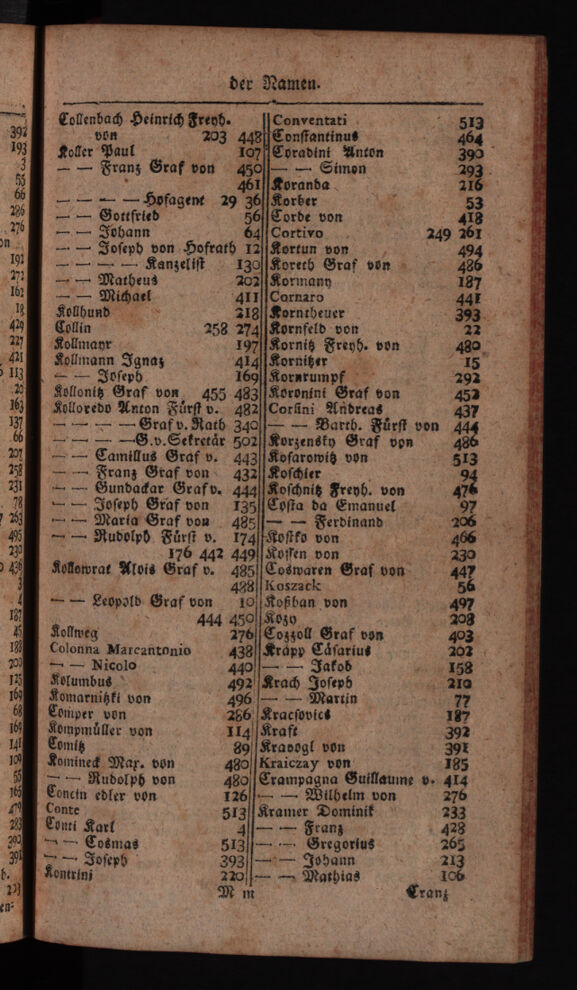 der Namen.
Collenbach Heinrich Freyh.
von 203 448
Koller Paul 107
— — Franz Graf von 450
461
— — — — Hofagent 29 36
— — Gottfried 56
— — Johann 64
— — Joseph von Hofrath 12
— — — — Kanzelist 130
— — Matheus 202
— — Michael 411
Kollhund 218
Collin 258 274
Kollmayr 197
Kollmann Ignaz 414
— — Joseph 169
Kollonitz Graf von 455 483
Kolloredo Anton Fürst v. 482
— — — — Graf v. Rath 340
— — — — G. v. Sekretär 502
— — Camillus Graf v. 443
— — Franz Graf von 432
— — Gundackar Graf v. 444
— — Joseph Graf von 135
— — Maria Graf von 485
— — Rudolph Fürst v. 174
176 442 449
Kollowrat Alois Graf v. 485
488
— — Leopold Graf von 10
444 450
Kollweg 276
Colonna Marcantonio 438
— — Nicolo 440
Kolumbus 492
Komarnitzki von 496
Comper von 286
Kompmüller von 114
Comitz 89
Komineck Max. von 480
— — Rudolph von 480
Concin edler von 126
Conte 513
Conti Karl 4
— — Cosmas 513
— — Joseph 393
Kontrini 220
Conventati 513
Constantinus 464
Coradini Anton 390
— — Simon 293
Koranda 216
Korber 53
Corde von 418
Cortivo 249 261
Kortun von 494
Koreth Graf von 486
Kormany 187
Cornaro 441
Korntheuer 393
Kornfeld von 22
Kornitz Freyh. von 480
Kornitzer 15
Kornrumpf 292
Koronini Graf von 452
Corsini Andreas 437
— — Barth. Fürst von 444
Korzensky Graf von 486
Kosarowitz von 513
Koschier 94
Koschnitz Freyh. von 476
Costa da Emanuel 97
— — Ferdinand 206
Kostko von 466
Kossen von 230
Coswaren Graf von 447
Koszack 56
Koßban von 497
Kozy 208
Cozzoll Graf von 403
Krapp Cäsarius 202
— — Jakob 158
Krach Joseph 210
— — Martin 77
Kracsovics 187
Kraft 392
Kravogl von 391
Kraiczay von 185
Crampagna Guillaume v. 414
— — Wilhelm von 276
Kramer Dominik 233
— — Franz 428
— — Gregorius 265
— — Johann 213
— — Mathias 106
M m
Cranz